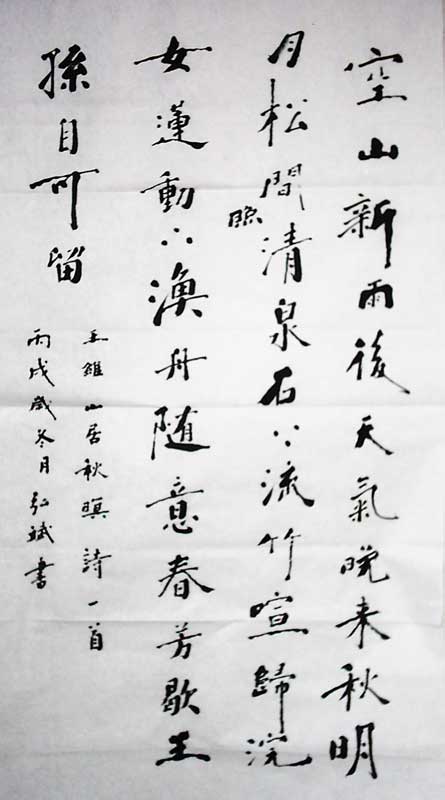 空山新雨後天氣晚来秋明
月松間照清泉石上流竹喧歸浣
女蓮動下漁舟随意春芳歇王
孫自可留
王維山居秋暝詩一首
丙戌歲冬月弘斌書